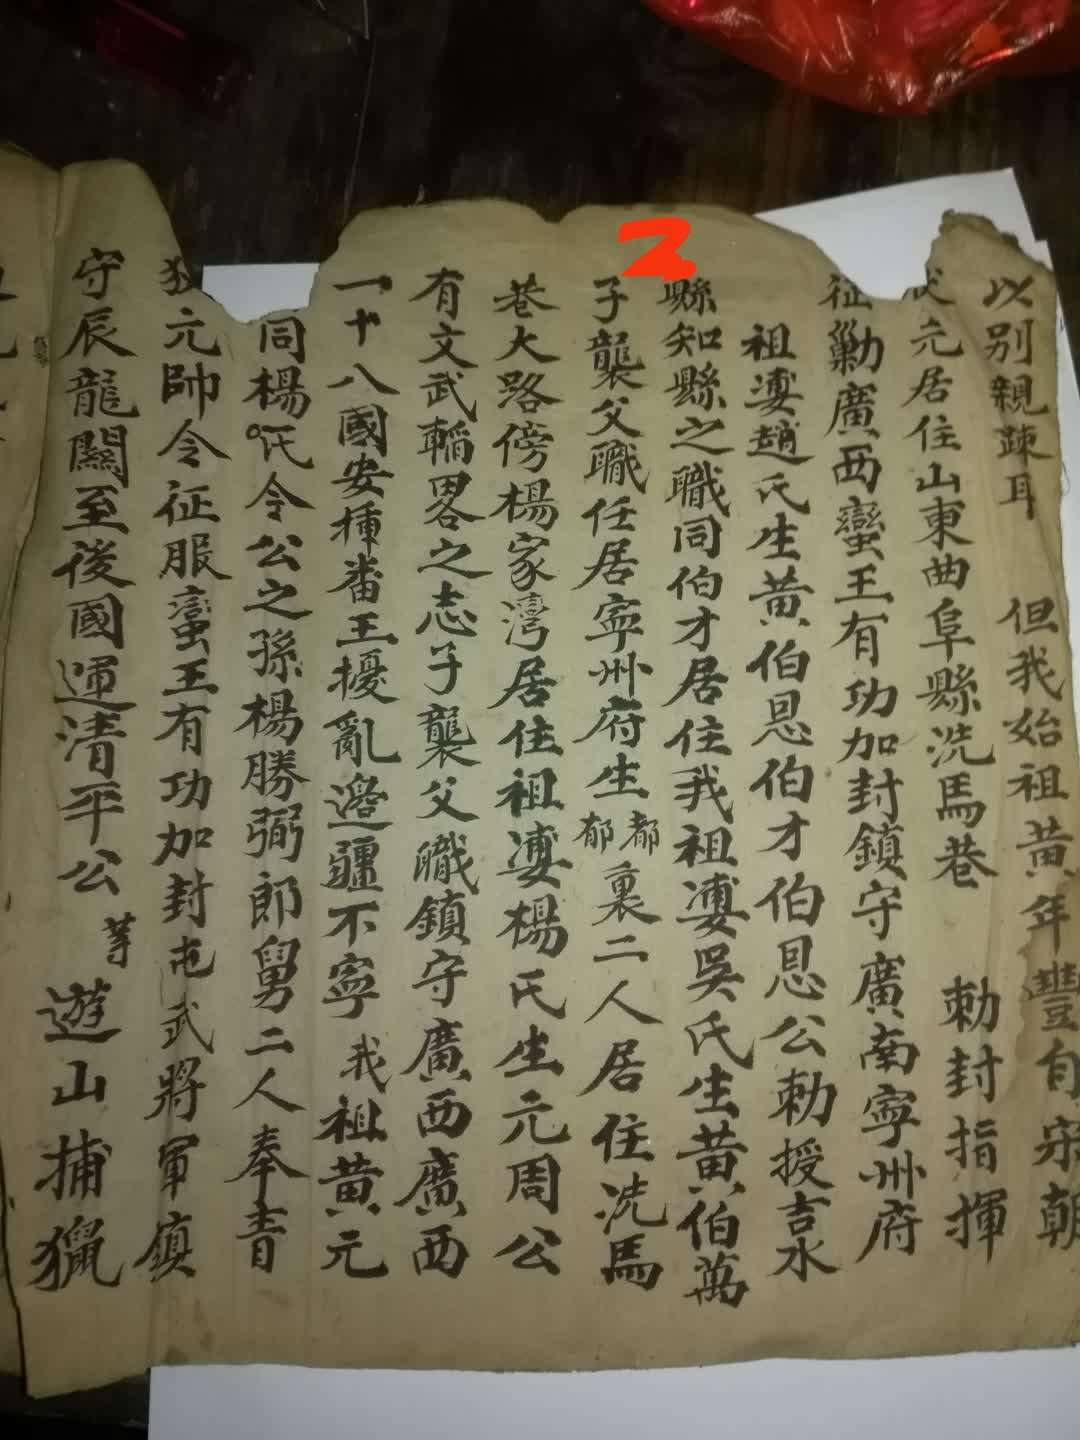 以別親疎耳　但我始祖黃年豐自宋朝
元居住山東曲阜縣洗馬巷　勅封指揮
征勦廣西蠻王有功加封鎮守廣南寧州府
祖婆趙氏生黃伯恩伯才伯恩公勅授吉水
縣知縣之職同伯才居住我祖婆吳氏生黃伯萬
子襲父職任居寧州府生都郁裏二人居住洗馬
巷大路傍楊家灣居住祖婆楊氏生元周公
有文武韜畧之志子襲父職鎮守廣西廣西
一十八國安撫番王擾亂邉疆不寧我祖黃元
同楊氏令公之孫楊勝弼郎舅二人奉青
狄元帥令征服蠻王有功加封屯武將軍鎮
守辰龍關至後國運清平公等遊山捕獵
2